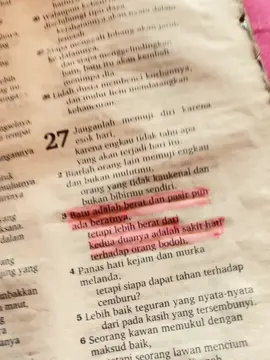 walaupun
hidungi tipu daya,
jemaah.
menggali lobang akan jatuh
dan siapa menggelindingkan
batu, batu itu akan kembali
menimpa dia.
28 Lidah dusta membenci korbannya,
dan mulut licin mendatangkan
kehancuran.
27 Janganlah memuji diri karena
esok hari,
karena engkau tidak tahu apa
yang akan terjadi hari itu.
2 Biarlah orang lain memuji engkau
dan bukan mulutmu,
orang yang tidak kaukenal dan
bukan bibirmu sendiri.
3 Batu adalah berat dan pasir pun
ada beratnya,
tetapi lebih berat dari
kedua-duanya adalah sakit hati
terhadap orang bodoh.
4 Panas hati kejam dan murka
melanda,
tetapi siapa dapat tahan terhadap
cemburu?
5 Lebih baik teguran yang nyata-nyata
dari pada kasih yang tersembunyi.
6 Seorang kawan memukul dengan
maksud baik,
tetapi seorang lawan mencium